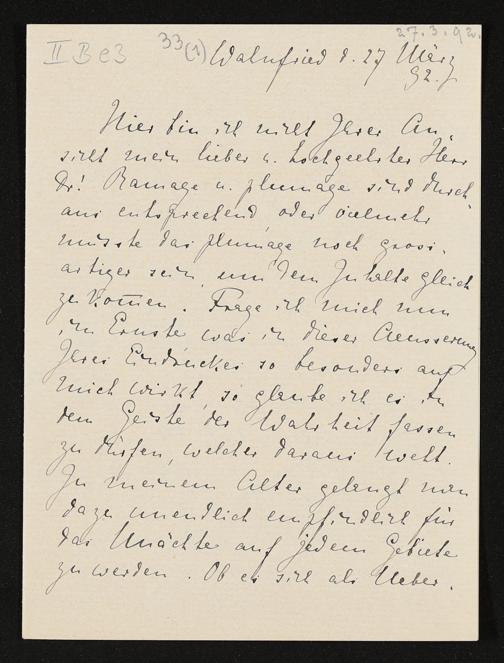 27.3.92.
II B e3 33(1) Wahnfried d. 27 März
92.
Hier bin ich nicht Ihrer An-
sicht mein lieber u. hochgeehrter Herr
Dr! Ramage u. plumage sind durch-
aus entsprechend, oder vielmehr
müsste das plumage noch gross-
artiger sein, um dem Inhalte gleich
zu kommen. Frage ich mich nun
im Ernste was in dieser Aeusserung
Ihres Eindruckes so besonders auf
mich wirkt, so glaube ich es in
dem Geiste der Wahrheit fassen
zu dürfen, welcher daraus weht.
In meinem Alter gelangt man
dazu unendlich empfindlich für
das Unächte auf jedem Gebiete
zu werden. Ob es sich als Ueber-